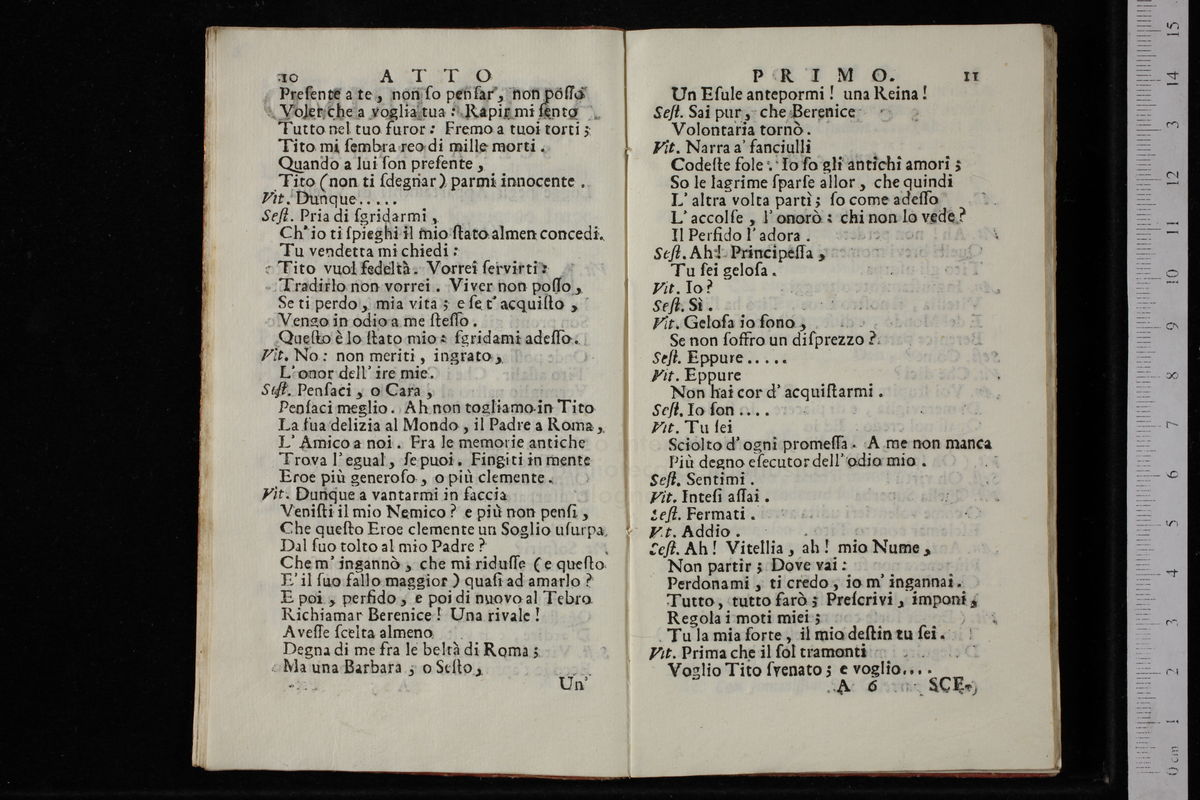 10 ATTO
Preſente a te, non ſo penſar, non poſſo
Voler che a voglia tua: Rapir mi ſento
Tutto nel tuo furor: Fremo a tuoi torti;
Tito mi ſembra reo di mille morti.
Quando a lui ſon preſente,
Tito (non ti ſdegnar) parmi innocente.
Vit. Dunque.....
Seſt. Pria di ſgridarmi,
Ch'io ti ſpieghi il mio ſtato almen concedi.
Tu vendetta mi chiedi:
Tito vuol fedeltà. Vorrei ſervirti:
Tradirlo non vorrei. Viver non poſſo,
Se ti perdo, mia vita; e ſe t'acquiſto,
Vengo in odio a me ſteſſo.
Queſto è lo ſtato mio: ſgridami adeſſo.
Vit. No: non meriti, ingrato,
L'onor dell'ire mie.
Seſt. Penſaci, o Cara,
Penſaci meglio. Ah non togliamo in Tito
La ſua delizia al Mondo, il Padre a Roma,
L'Amico a noi. Fra le memorie antiche
Trova l'egual, ſe puoi. Fingiti in mente
Eroe più generoſo, o più clemente.
Vit. Dunque a vantarmi in faccia
Veniſti il mio Nemico? e più non penſi,
Che queſto Eroe clemente un Soglio uſurpa
Dal ſuo tolto al mio Padre?
Che m'ingannò, che mi riduſſe (e queſto
E'il ſuo fallo maggior) quaſi ad amarlo?
E poi, perfido, e poi di nuovo al Tebro
Richiamar Berenice! Una rivale!
Aveſſe ſcelta almeno
Degna di me fra le beltà di Roma;
Ma una Barbara, o Seſto,
Un'
PRIMO. 11
Un Eſule antepormi! una Reina!
Seſt. Sai pur, che Berenice
Volontaria tornò.
Vit. Narra a' fanciulli
Codeſte fole. Io ſo gli antichi amori;
So le lagrime ſparſe allor, che quindi
L'altra volta partì; ſo come adeſſo
L'accolſe, l'onorò: chi non lo vede?
Il Perfido l'adora.
Seſt. Ah! Principeſſa,
Tu ſei geloſa.
Vit. Io?
Seſt. Sì.
Vit. Geloſa io ſono,
Se non ſoffro un diſprezzo?
Seſt. Eppure.....
Vit. Eppure
Non hai cor d'acquiſtarmi.
Seſt. Io ſon....
Vit. Tu ſei
Sciolto d'ogni promeſſa. A me non manca
Più degno eſecutor dell'odio mio.
Seſt. Sentimi.
Vit. Inteſi aſſai.
Seſt. Fermati.
Vit. Addio.
Seſt. Ah! Vitellia, ah! mio Nume,
Non partir; Dove vai:
Perdonami, ti credo, io m'ingannai.
Tutto, tutto farò; Preſcrivi, imponi,
Regola i moti miei;
Tu la mia ſorte, il mio deſtin tu ſei.
Vit. Prima che il ſol tramonti
Voglio Tito ſvenato; e voglio....
A 6 SCE-
0 cm 1 2 3 4 5 6 7 8 9 10 11 12 13 14 15